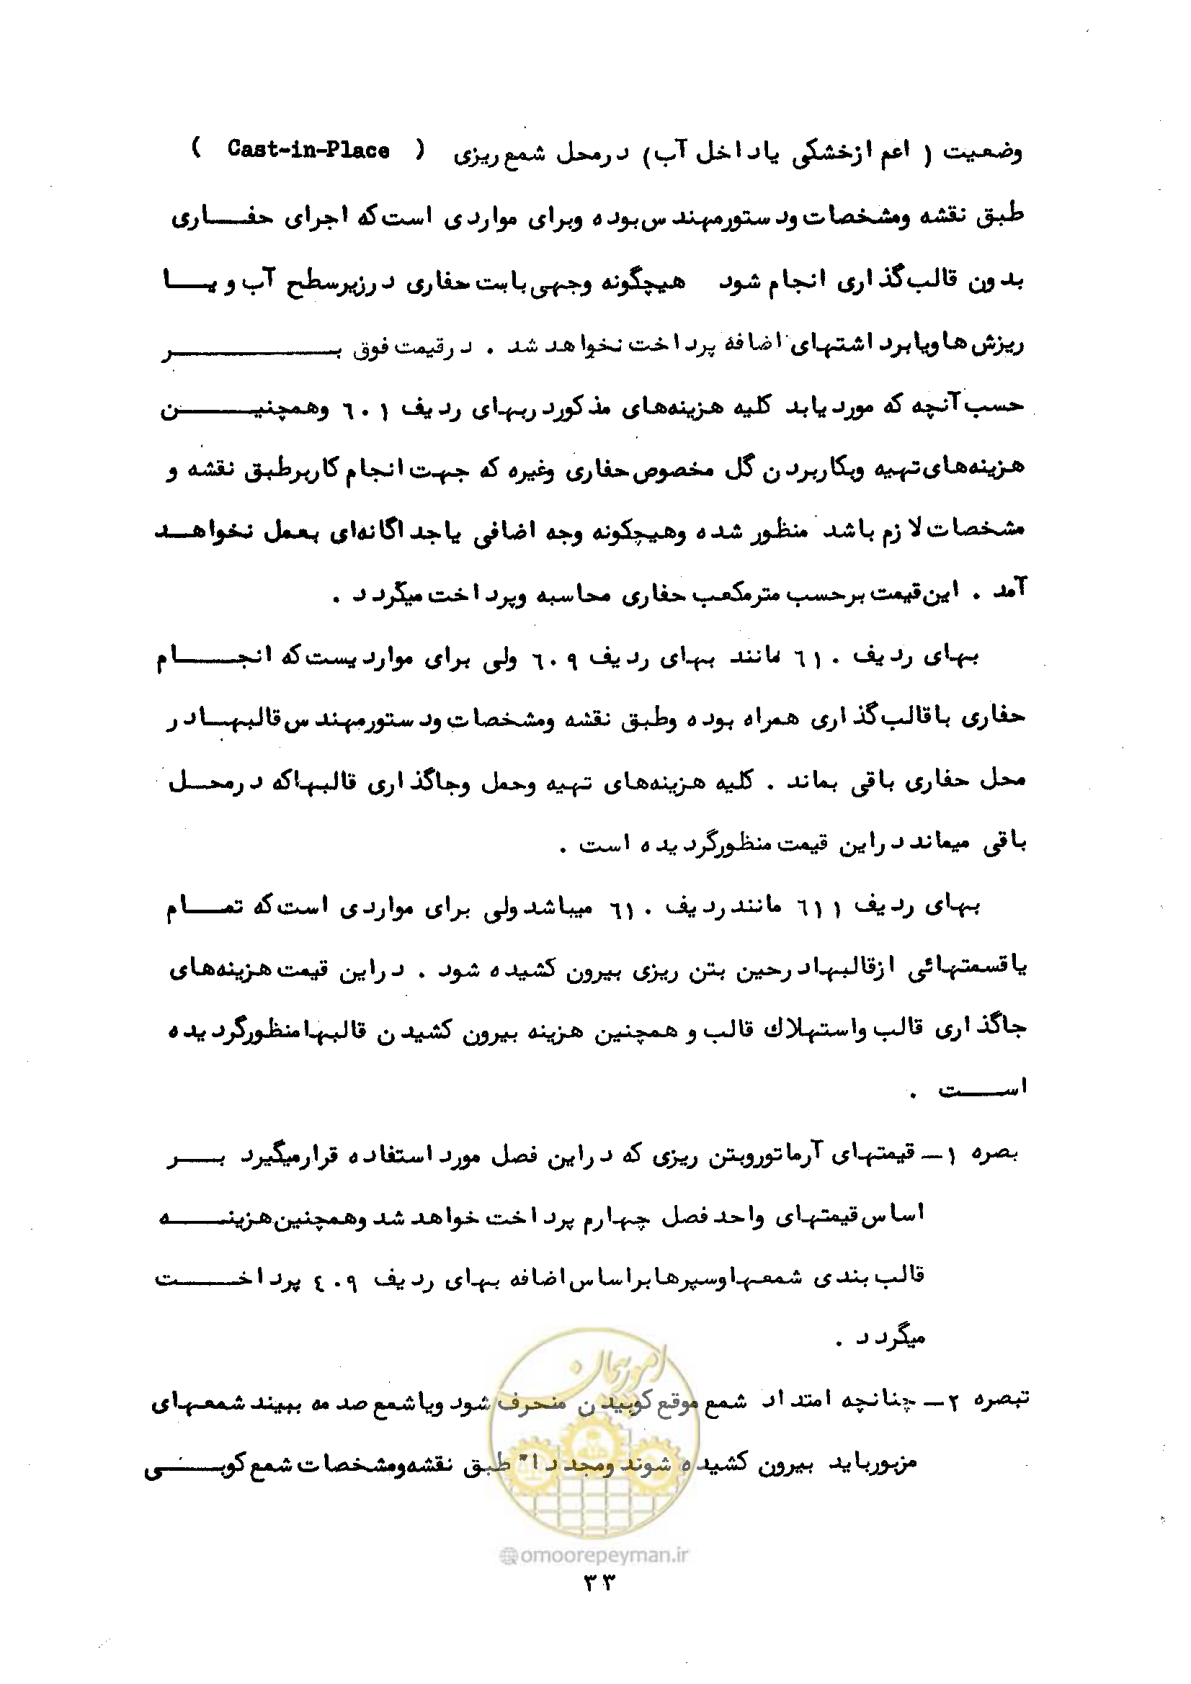 وضعیت ( اعم ازخشکی یاداخل آب) درمحل شمع ریزی ( Cast-in-Place )
طبق نقشه ومشخصات ودستورمهندس بوده وبرای مواردی است که اجرای حفاری
بدون قالب گذاری انجام شود هیچگونه وجهی بابت حفاری درزیرسطح آب و یا
ریزش هاویابرداشتهای اضافه پرداخت نخواهدشد . درقیمت فوق بر
حسب آنچه که موردیابد کلیه هزینه‌های مذکوردربهای ردیف ۶۰۱ وهمچنین
هزینه‌های تهیه وبکاربردن گل مخصوص حفاری وغیره که جهت انجام کاربرطبق نقشه و
مشخصات لازم باشد منظور شده وهیچکونه وجه اضافی یاجداگانه‌ای بعمل نخواهد
آمد . این قیمت برحسب مترمکعب حفاری محاسبه وپرداخت میگردد .
بهای ردیف ۶۱۰ مانند بهای ردیف ۶۰۹ ولی برای مواردیست که انجام
حفاری باقالب گذاری همراه بوده وطبق نقشه ومشخصات ودستورمهندس قالبهادر
محل حفاری باقی بماند . کلیه هزینه‌های تهیه وحمل وجاگذاری قالبهاکه درمحل
باقی میماند دراین قیمت منظورگردیده است .
بهای ردیف ۶۱۱ مانندردیف ۶۱۰ میباشدولی برای مواردی است که تمام
یاقسمتهائی ازقالبهادرحین بتن ریزی بیرون کشیده شود . دراین قیمت هزینه‌های
جاگذاری قالب واستهلاک قالب و همچنین هزینه بیرون کشیدن قالبهامنظورگردیده
است .
بصره ۱- قیمتهای آرماتوروبتن ریزی که دراین فصل مورد استفاده قرارمیگیرد بر
اساس قیمتهای واحدفصل چهارم پرداخت خواهدشد وهمچنین هزینه
قالب بندی شمعهاوسپرهابراساس اضافه بهای ردیف ۴۰۹ پرداخت
میگردد .
تبصره ۲- چنانچه امتداد شمع موقع کوبیدن منحرف شود ویاشمع صدمه ببیند شمعهای
مزبورباید بیرون کشیده شوند ومجدداً طبق نقشه‌ومشخصات شمع کوبی
امور پیمان
@omoorepeyman.ir
۳۳